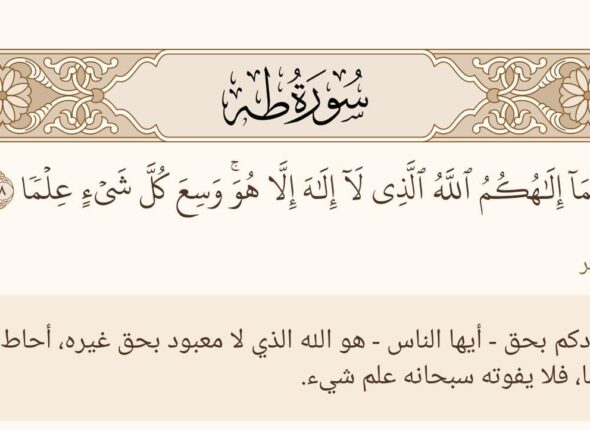 سُورَةُ طه
إِلَٰهُكُمُ ٱللَّهُ ٱلَّذِى لَآ إِلَٰهَ إِلَّا هُوَ ۚ وَسِعَ كُلَّ شَىْءٍ عِلْمًا
بحق - أيها الناس - هو الله الذي لا معبود بحق غيره، أحاط
فلا يفوته سبحانه علم شيء.